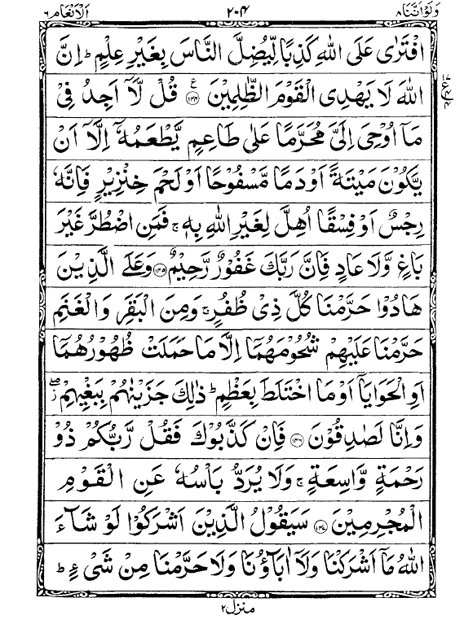 ولواننا ٨ ٢٠٤ الانعام ٦
افْتَرٰى عَلَى اللّٰهِ كَذِبًا لِّيُضِلَّ النَّاسَ بِغَيْرِ عِلْمٍ ؕ اِنَّ
اللّٰهَ لَا يَهْدِى الْقَوْمَ الظّٰلِمِيْنَ ﴿١٤٤﴾ قُلْ لَّاۤ اَجِدُ فِىْ
مَاۤ اُوْحِىَ اِلَىَّ مُحَرَّمًا عَلٰى طَاعِمٍ يَّطْعَمُهٗۤ اِلَّاۤ اَنْ
يَّكُوْنَ مَيْتَةً اَوْ دَمًا مَّسْفُوْحًا اَوْ لَحْمَ خِنْزِيْرٍ فَاِنَّهٗ
رِجْسٌ اَوْ فِسْقًا اُهِلَّ لِغَيْرِ اللّٰهِ بِهٖ ۚ فَمَنِ اضْطُرَّ غَيْرَ
بَاغٍ وَّلَا عَادٍ فَاِنَّ رَبَّكَ غَفُوْرٌ رَّحِيْمٌ ﴿١٤٥﴾ وَعَلَى الَّذِيْنَ
هَادُوْا حَرَّمْنَا كُلَّ ذِىْ ظُفُرٍ ۚ وَمِنَ الْبَقَرِ وَالْغَنَمِ
حَرَّمْنَا عَلَيْهِمْ شُحُوْمَهُمَاۤ اِلَّا مَا حَمَلَتْ ظُهُوْرُهُمَاۤ
اَوِ الْحَوَايَاۤ اَوْ مَا اخْتَلَطَ بِعَظْمٍ ؕ ذٰلِكَ جَزَيْنٰهُمْ بِبَغْيِهِمْ ۖ
وَاِنَّا لَصٰدِقُوْنَ ﴿١٤٦﴾ فَاِنْ كَذَّبُوْكَ فَقُلْ رَّبُّكُمْ ذُوْ
رَحْمَةٍ وَّاسِعَةٍ ۚ وَلَا يُرَدُّ بَاْسُهٗ عَنِ الْقَوْمِ
الْمُجْرِمِيْنَ ﴿١٤٧﴾ سَيَقُوْلُ الَّذِيْنَ اَشْرَكُوْا لَوْ شَآءَ
اللّٰهُ مَاۤ اَشْرَكْنَا وَلَاۤ اٰبَآؤُنَا وَلَا حَرَّمْنَا مِنْ شَىْءٍ ؕ
منزل ٢